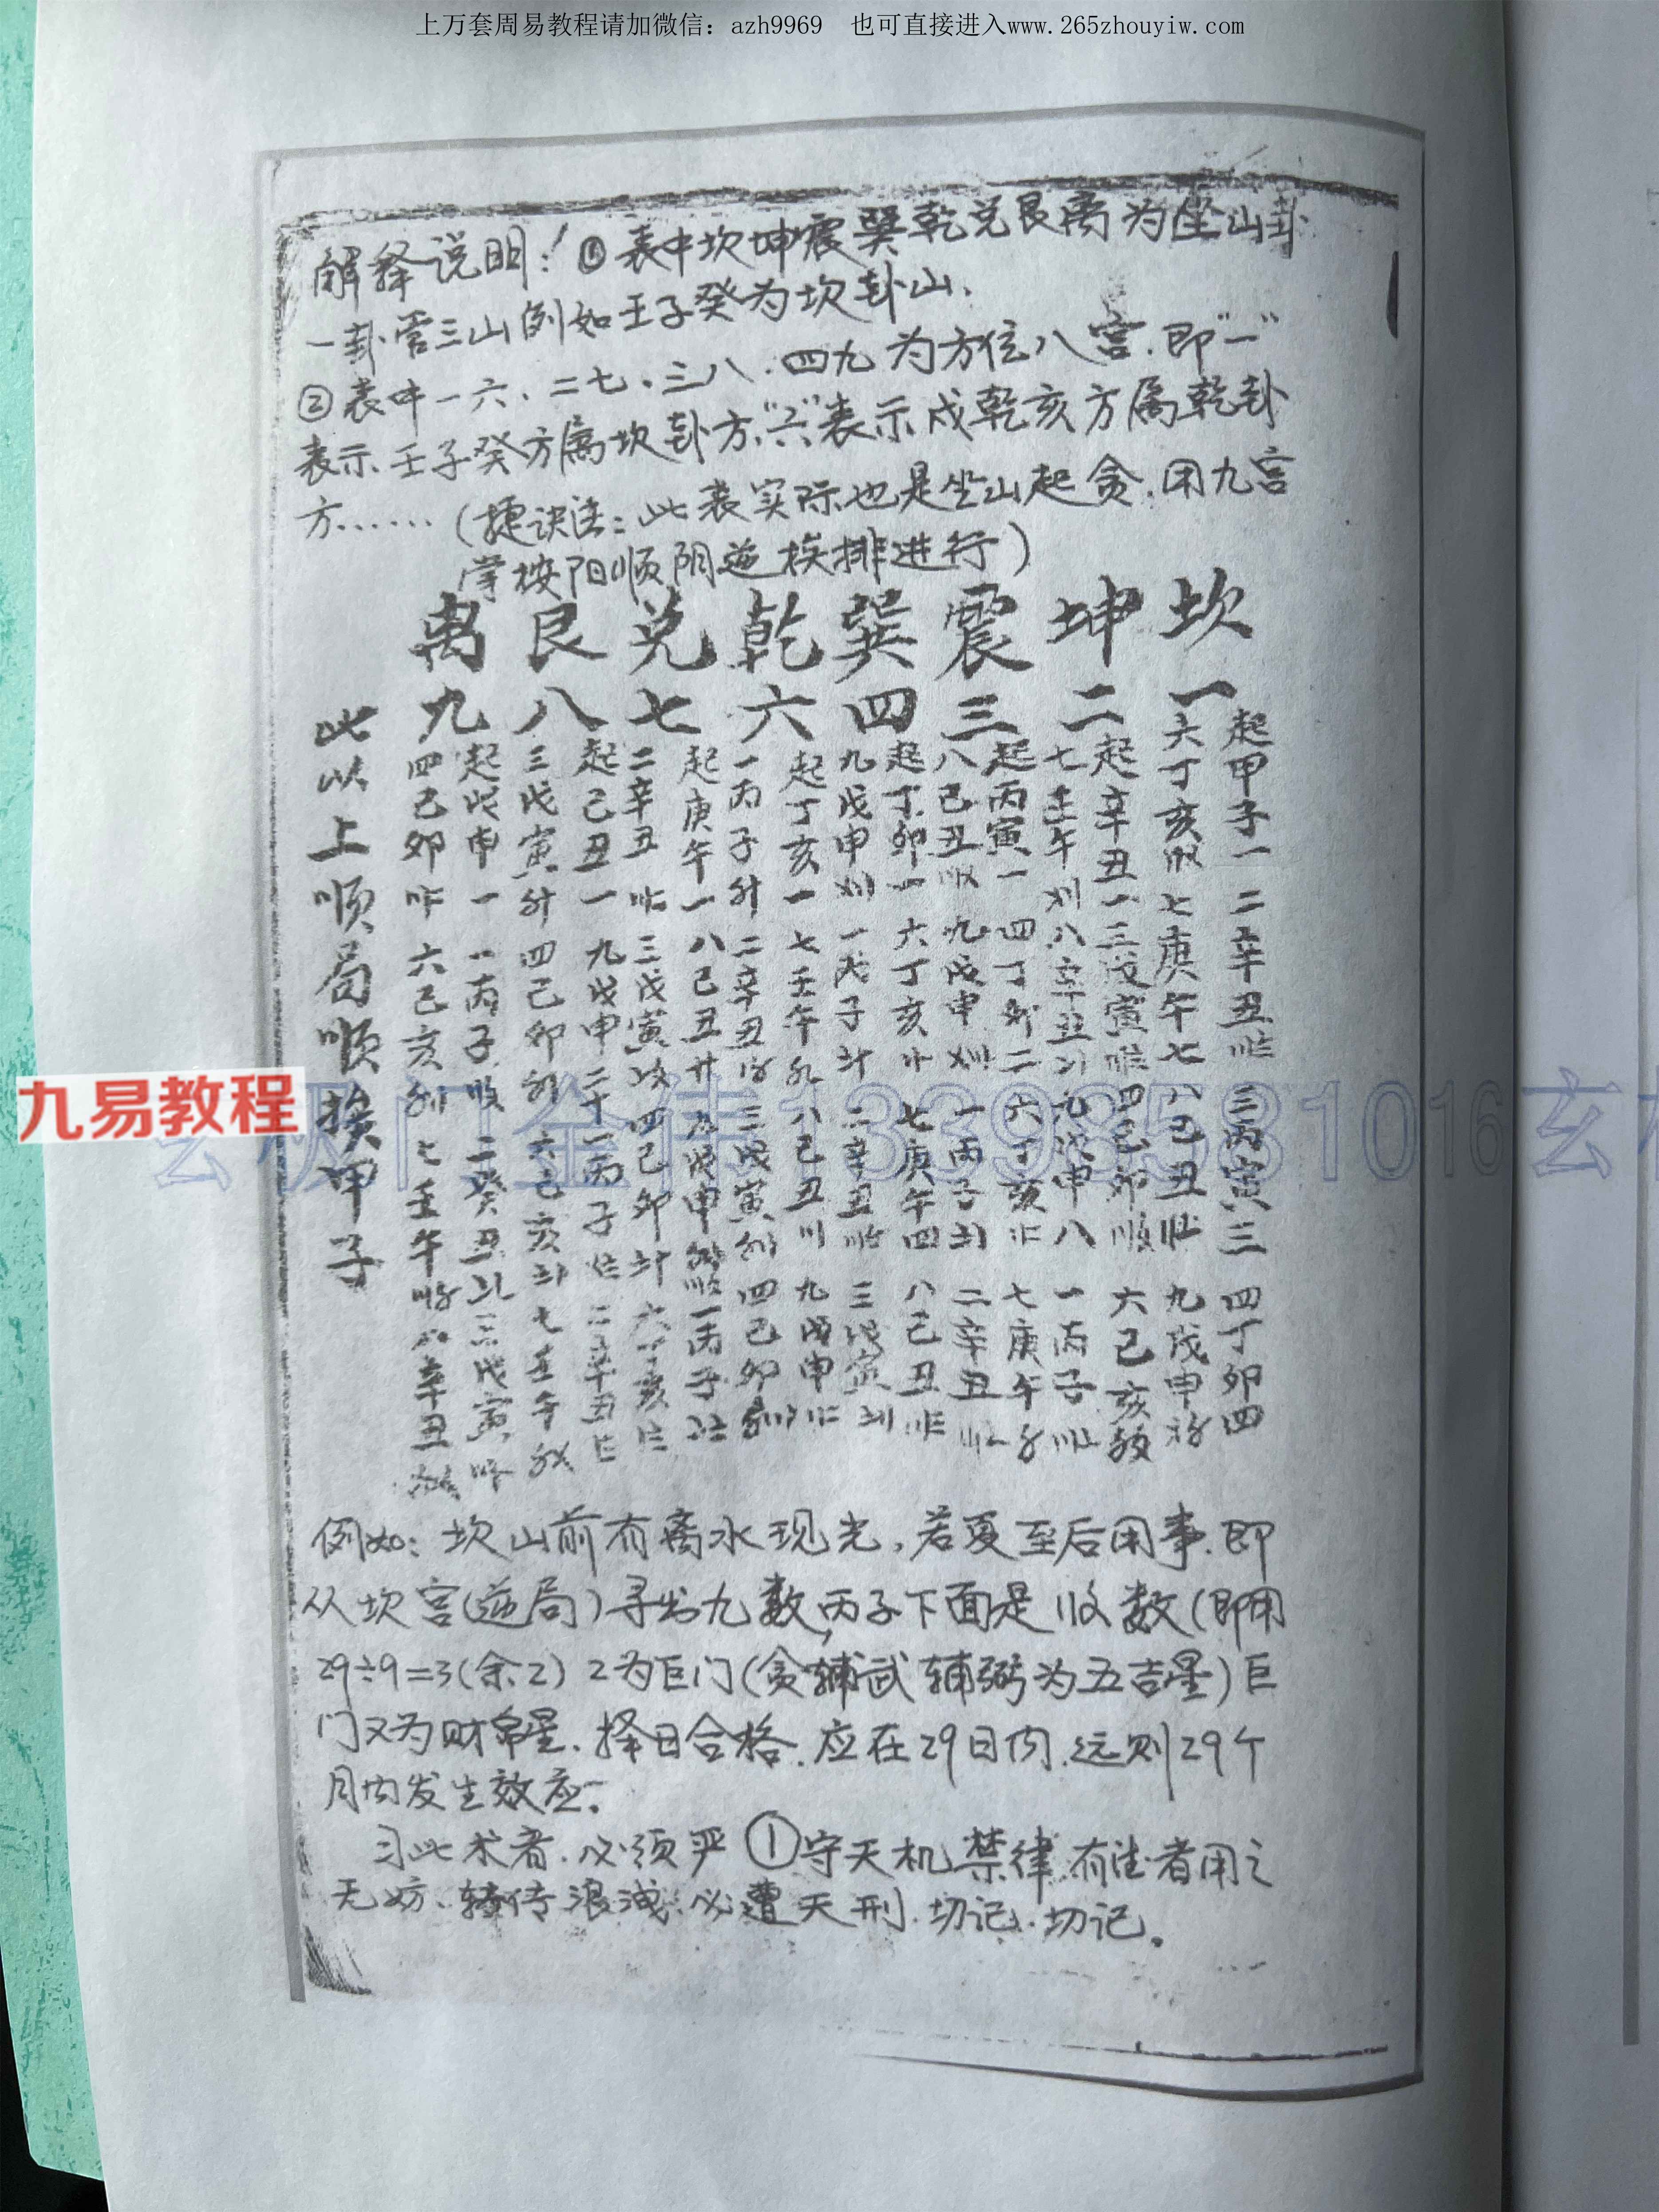 上万套周易教程请加微信：azh9969　也可直接进入www.265zhouyiw.com
解释说明：①表中坎坤震巽乾兑艮离为坐山卦
一卦管三山例如壬子癸为坎卦山、
②表中一六、二七、三八、四九为方位八宫.即"一"
表示壬子癸方属坎卦方、"六"表示戌乾亥方属乾卦
方……（捷诀法：此表实际也是坐山起贪.用九宫
掌按阳顺阴逆挨排进行）
离艮兑乾巽震坤坎
九八七六四三二一
起甲子一 二辛丑 三丙寅三 四丁卯四
六丁亥 七庚午七 八己丑 九戊申
起辛丑一 三戊寅 四己卯 六己亥
七壬午 八辛丑 九戊申八 一丙子
起丙寅一 四丁卯二 六丁亥 七庚午
八己丑 九戊申 一丙子 二辛丑
起丁卯一 六丁亥 七庚午四 八己丑
九戊申 一戊子 二辛丑 三戊寅
起丁亥一 七壬午 八己丑 九戊申
一丙子 二辛丑 三戊寅 四己卯
起庚午一 八己丑 九戊申 一丙子
二辛丑 三戊寅 四己卯 六亥
起己丑一 九戊申二 一丙子 二辛丑
三戊寅 四己卯 六己亥 七壬午
起戊申一 一丙子 二癸丑 三戊寅
四己卯 六己亥 七壬午 八辛丑
此以上顺局顺挨甲子
九易教程
玄极门金伟13398581016玄极
例如：坎山前有离水现光，若夏至后用事.即
从坎宫(逆局)寻出九数，丙子下面是 数(即用
29÷9=3(余2) 2为巨门(贪辅武辅弼为五吉星)巨
门又为财帛星、择日合格.应在29日内.远则29个
月内发生效应。
习此术者.必须严①守天机禁律.有法者用之
无妨、轻传浪泄.必遭天刑.切记.切记。